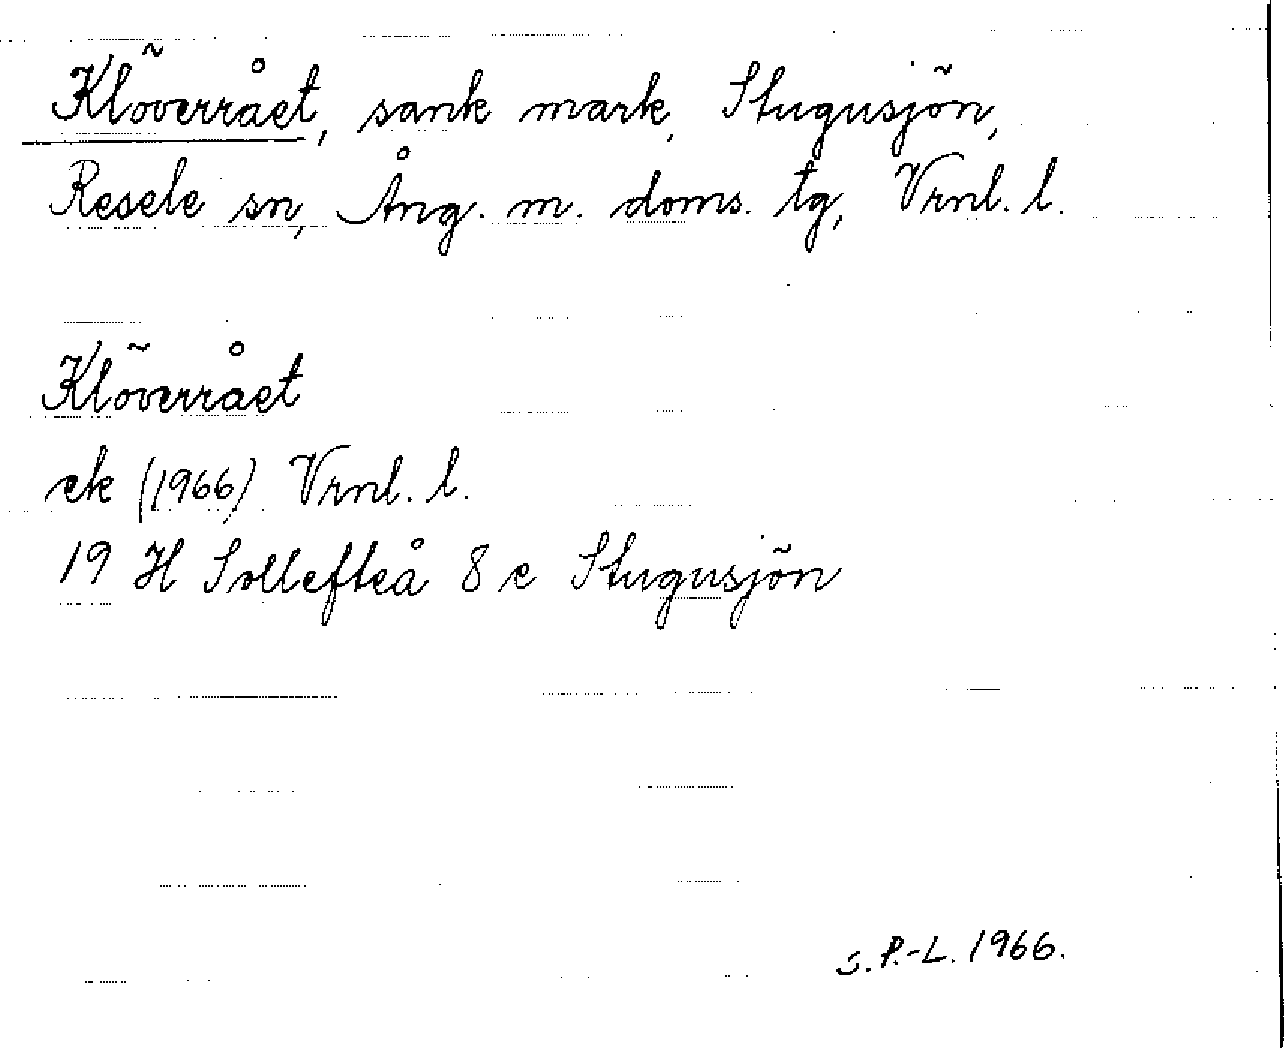 Klöverrået, sank mark, Stugusjön,
Resele sn, Ång. m. doms. tg, Vrnl. l.
Klöverrået
ek (1966) Vrnl. l.
19 H Sollefteå 8 e Stugusjön
S.P.-L. 1966.